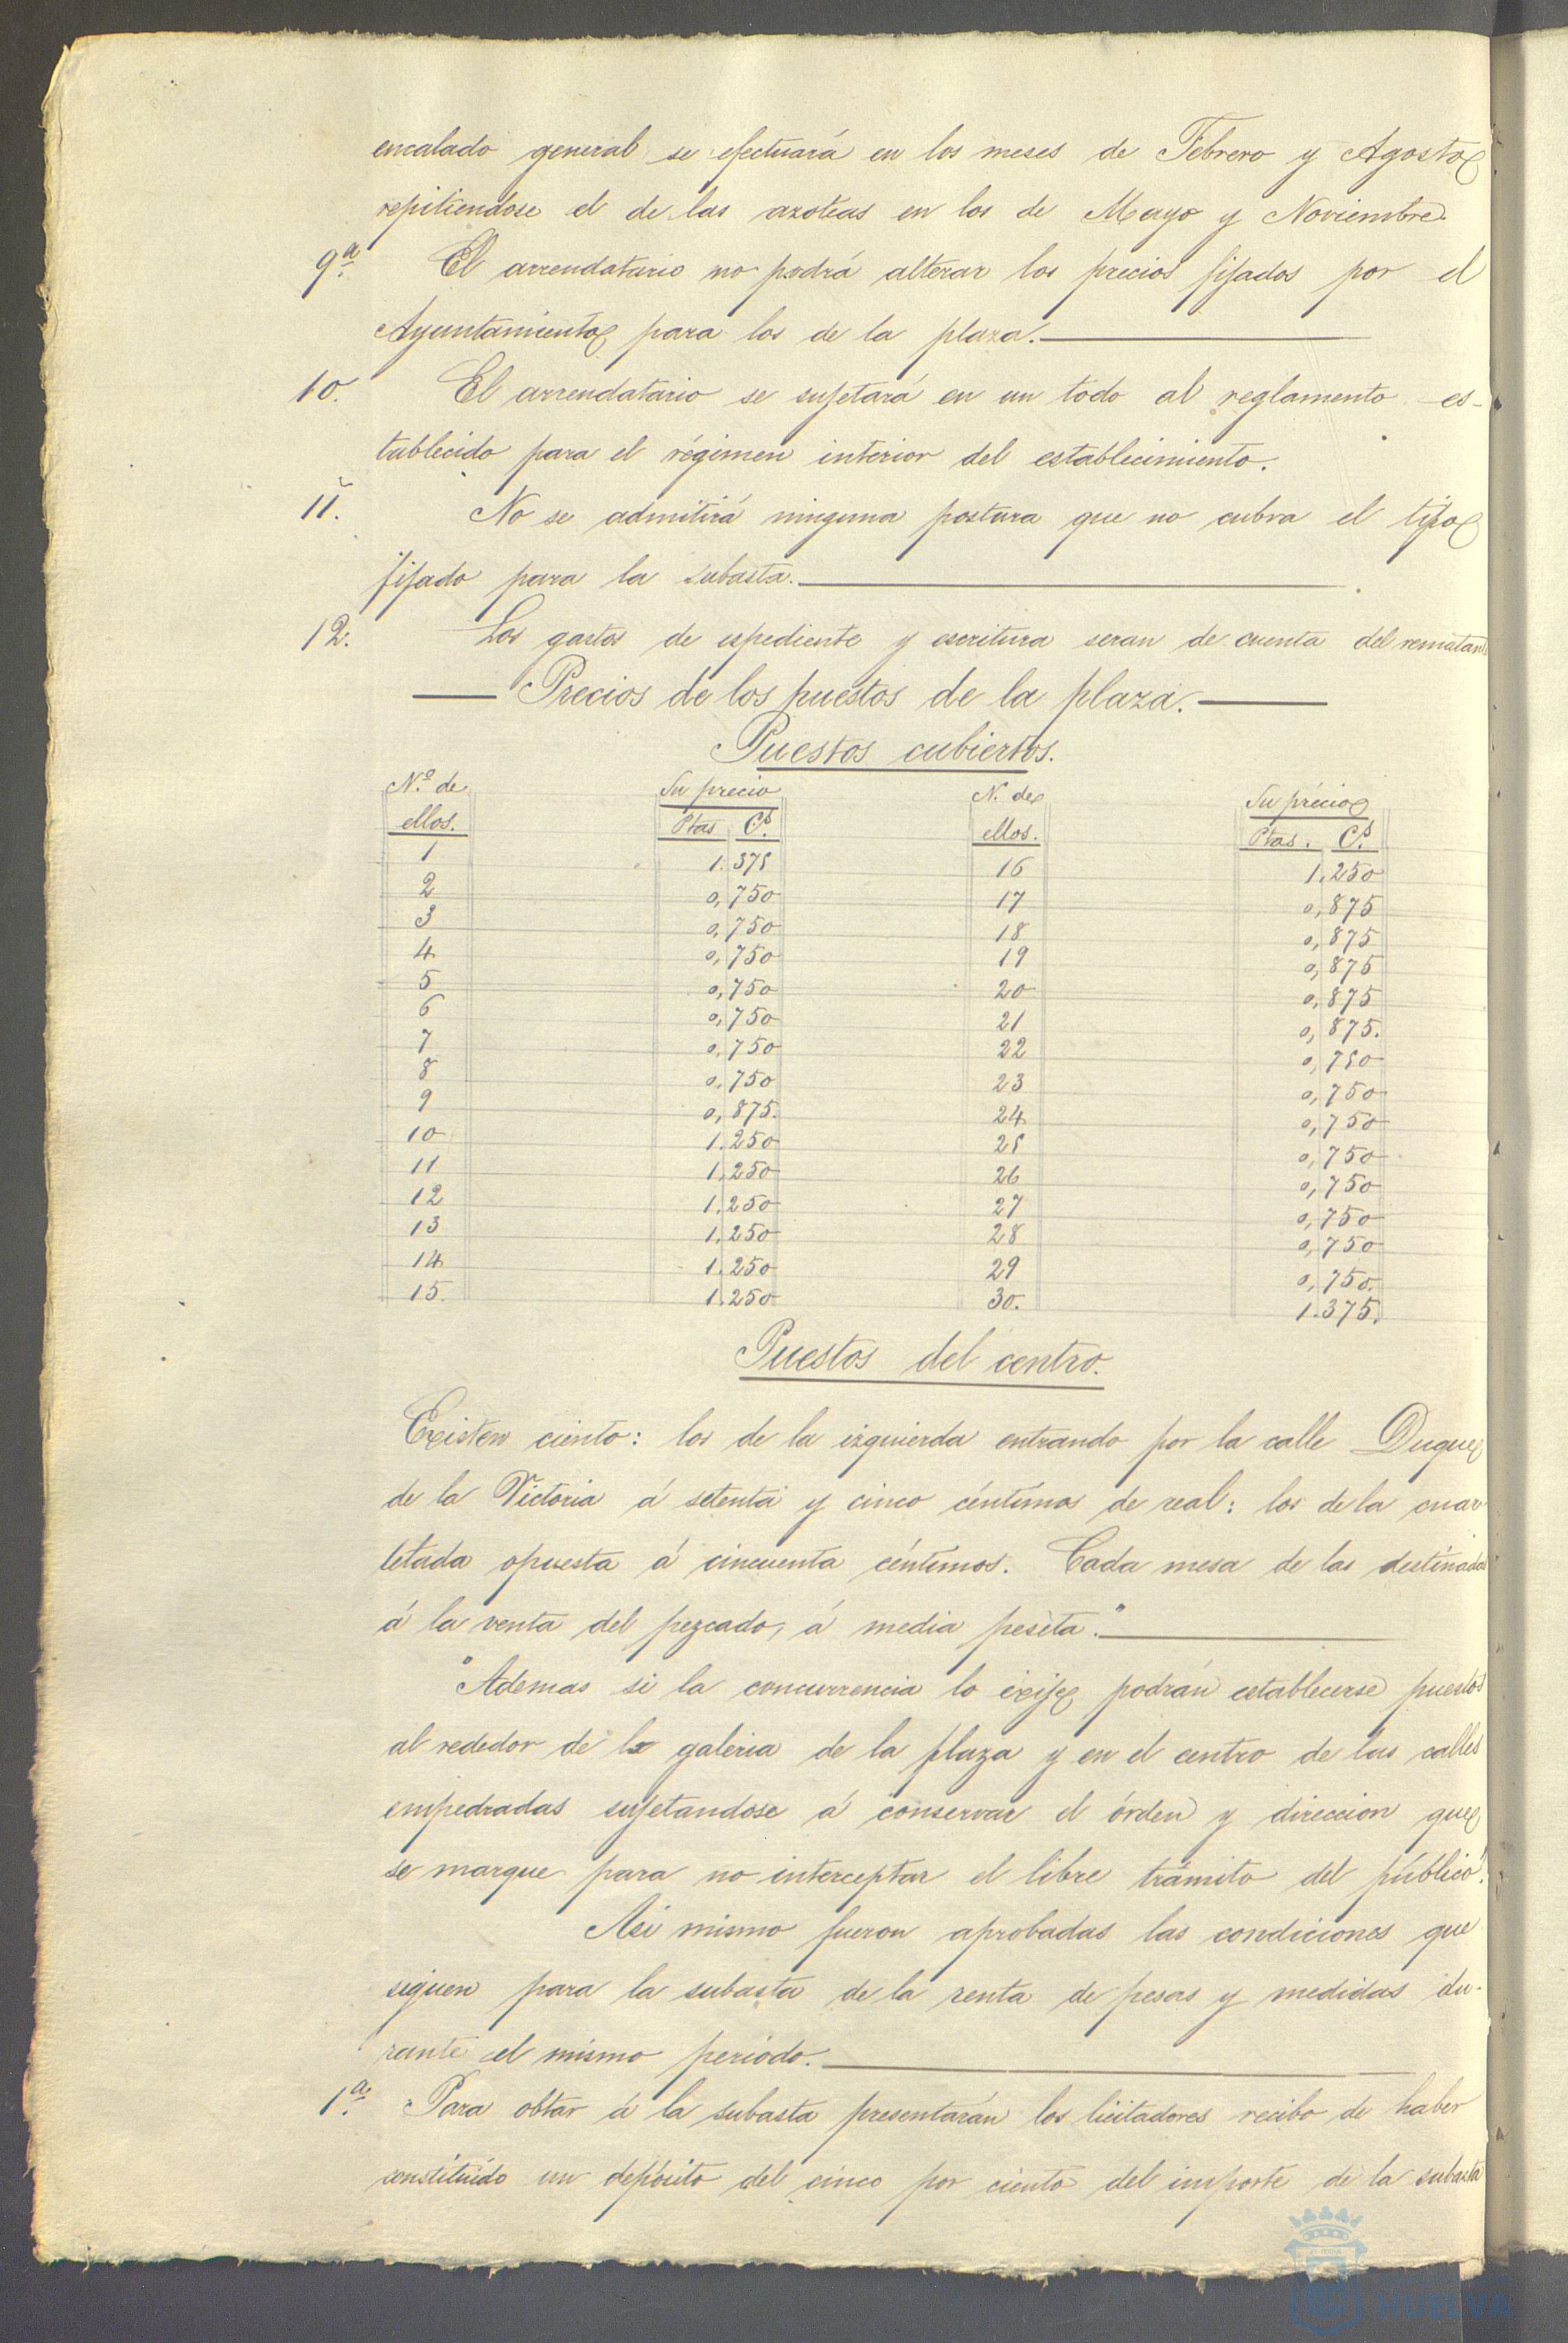 encalado general se efectuará en los meses de Febrero y Agosto
repitiendose el de las azoteas en los de Mayo y Noviembre.
9ª. El arrendatario no podrá alterar los precios fijados por el
Ayuntamiento para los de la plaza.
10. El arrendatario se sujetará en un todo al reglamento es-
tablecido para el régimen interior del establecimiento.
11. No se admitirá ninguna postura que no cubra el tipo
fijado para la subasta.
12. Los gastos de espediente y escritura seran de cuenta del rematante
Precios de los puestos de la plaza.
Puestos cubiertos.
N.º de Su precio N. de Su precio
ellos. Ptas Cs. ellos. Ptas. Cs.
1 1.375 16 1.250
2 0,750 17 0,875
3 0,750 18 0,875
4 0,750 19 0,875
5 0,750 20 0,875
6 0,750 21 0,875.
7 0,750 22 0,750
8 0,750 23 0,750
9 0,875. 24 0,750
10 1.250 25 0,750
11 1,250 26 0,750
12 1,250 27 0,750
13 1,250 28 0,750
14 1.250 29 0,750.
15. 1.250 30. 1.375.
Puestos del centro.
Existen ciento: los de la izquierda entrando por la calle Duque
de la Victoria á setenta y cinco céntimos de real: los de la cuar
tetada opuesta á cincuenta céntimos. Cada mesa de las destinadas
á la venta del pezcado, á media peseta."
"Ademas si la concurrencia lo exije podrán establecerse puestos
al rededor de la galeria de la plaza y en el centro de las calles
empedradas sujetandose á conservar el órden y direccion que
se marque para no interceptar el libre trámito del público."
Asi mismo fueron aprobadas las condiciones que
siguen para la subasta de la renta de pesas y medidas du-
rante el mismo periódo.
1ª. Para obtar á la subasta presentarán los licitadores recibo de haber
constituido un depósito del cinco por ciento del importe de la subasta
HUELVA